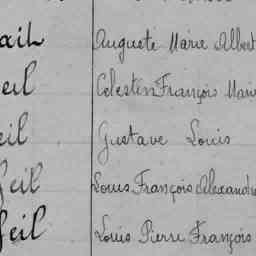 ail Auguste Marie Albert
eil Célestin François Marie
eil Gustave Louis
feil Louis François Alexandre
feil Louis Pierre François